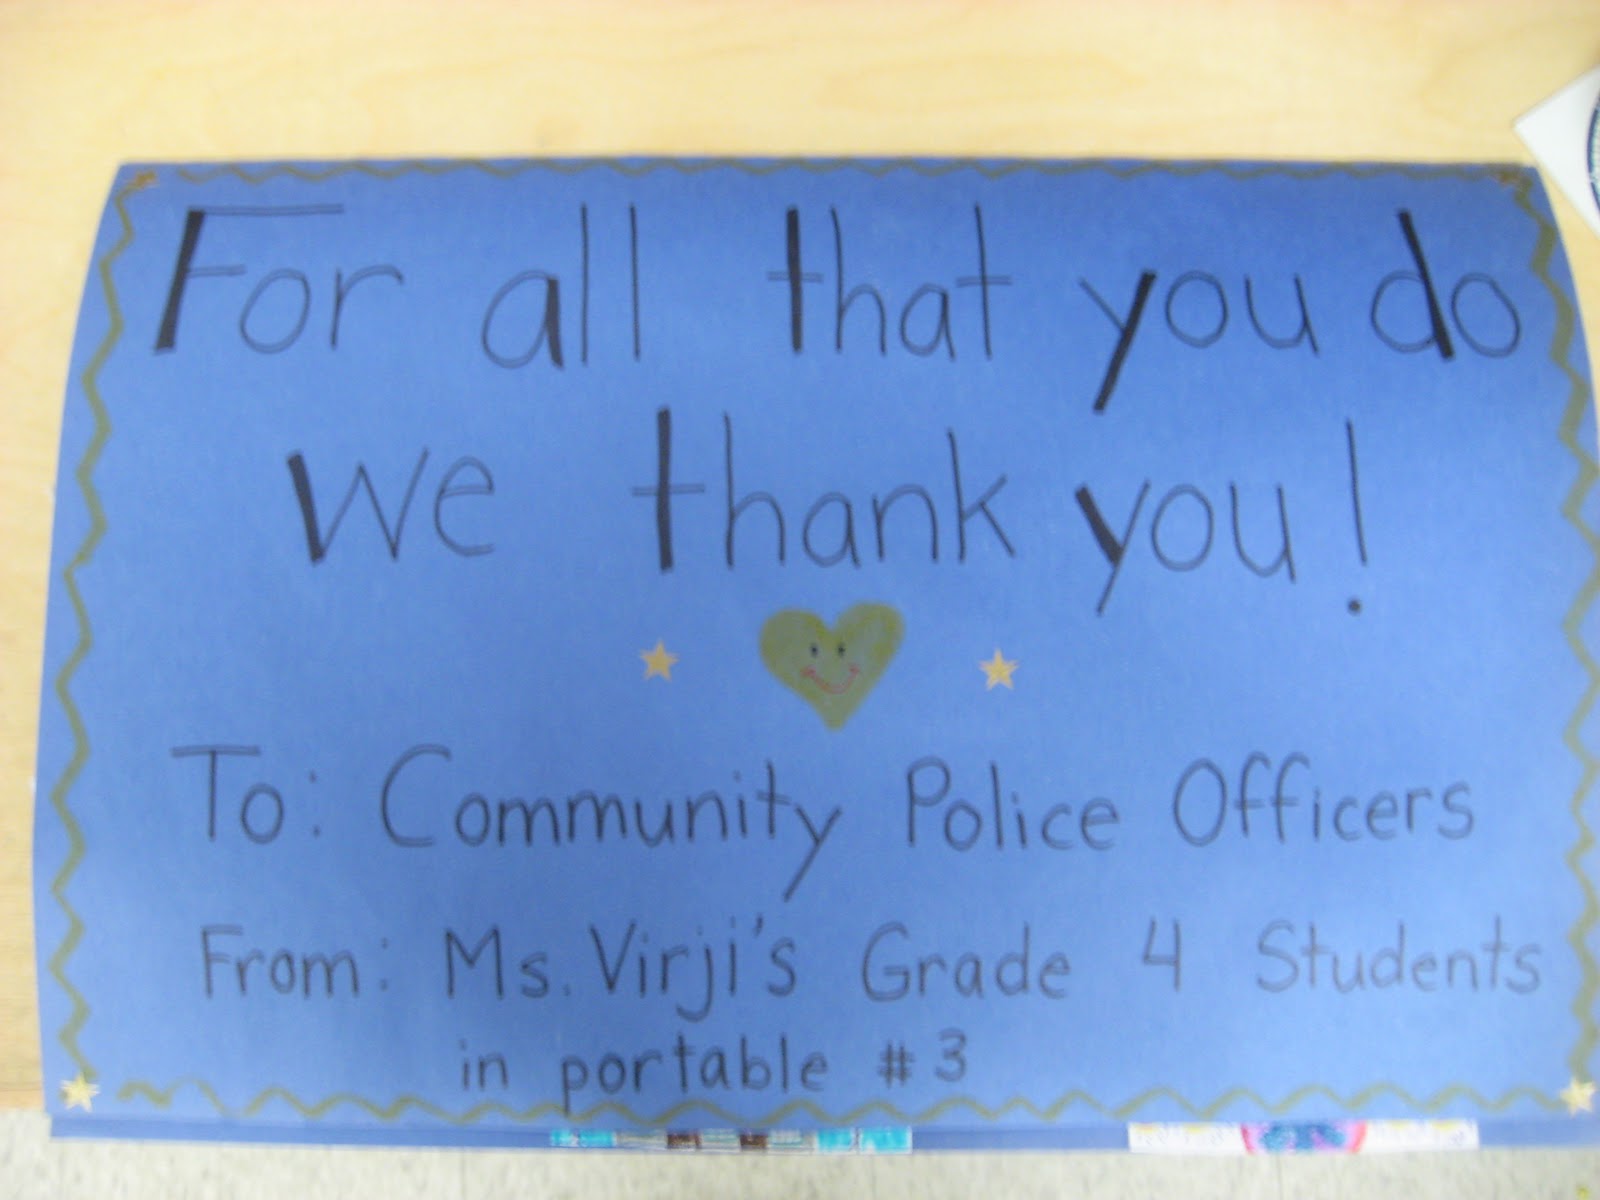 For all that you do
we thank you!
To: Community Police Officers
From: Ms. Virji's Grade 4 Students
in portable #3